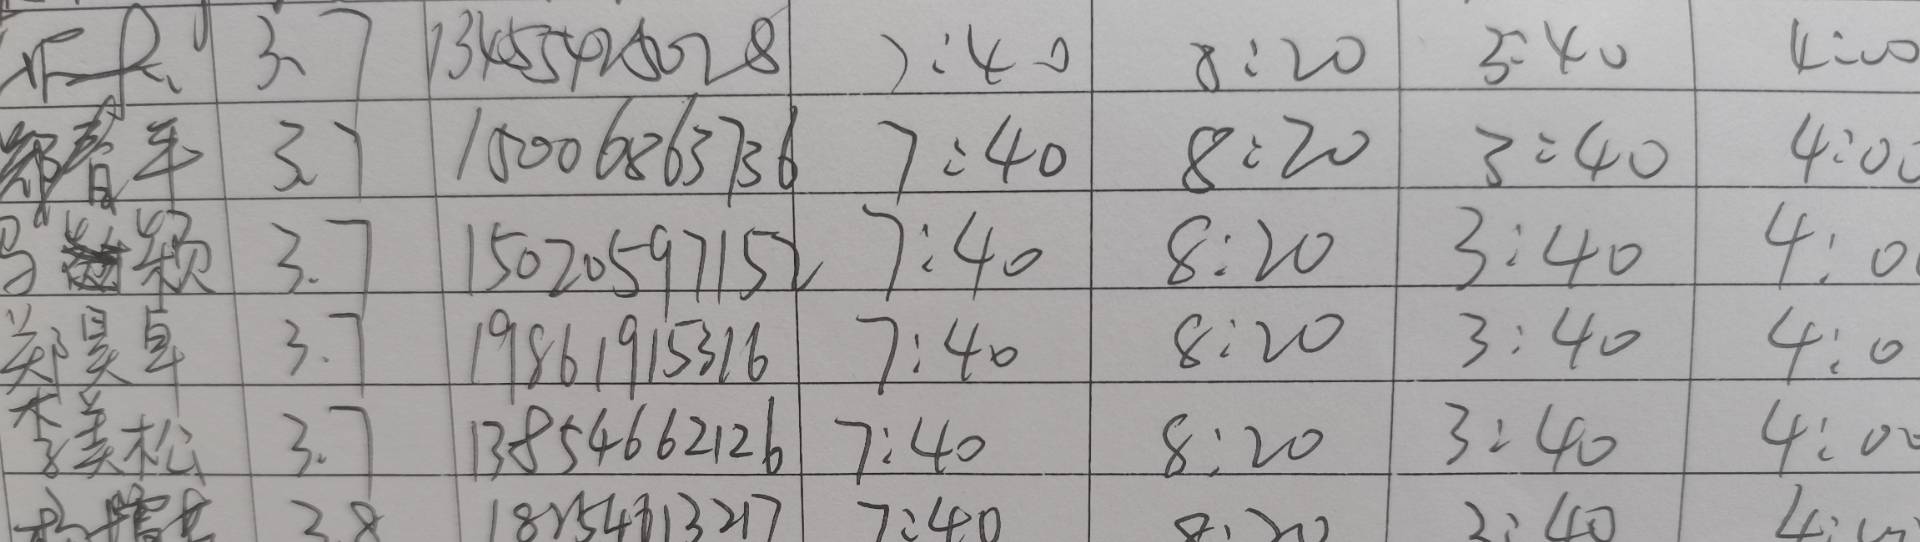 3.7 13455425028 7:40 8:20 3:40 4:00
郑春年 3.7 15006863736 7:40 8:20 3:40 4:00
马 颖 3.7 15020597152 7:40 8:20 3:40 4:0
郑昊卓 3.7 19861915316 7:40 8:20 3:40 4:0
李美松 3.7 13854662126 7:40 8:20 3:40 4:00
3.8 7:40 8:20 3:40 4:00